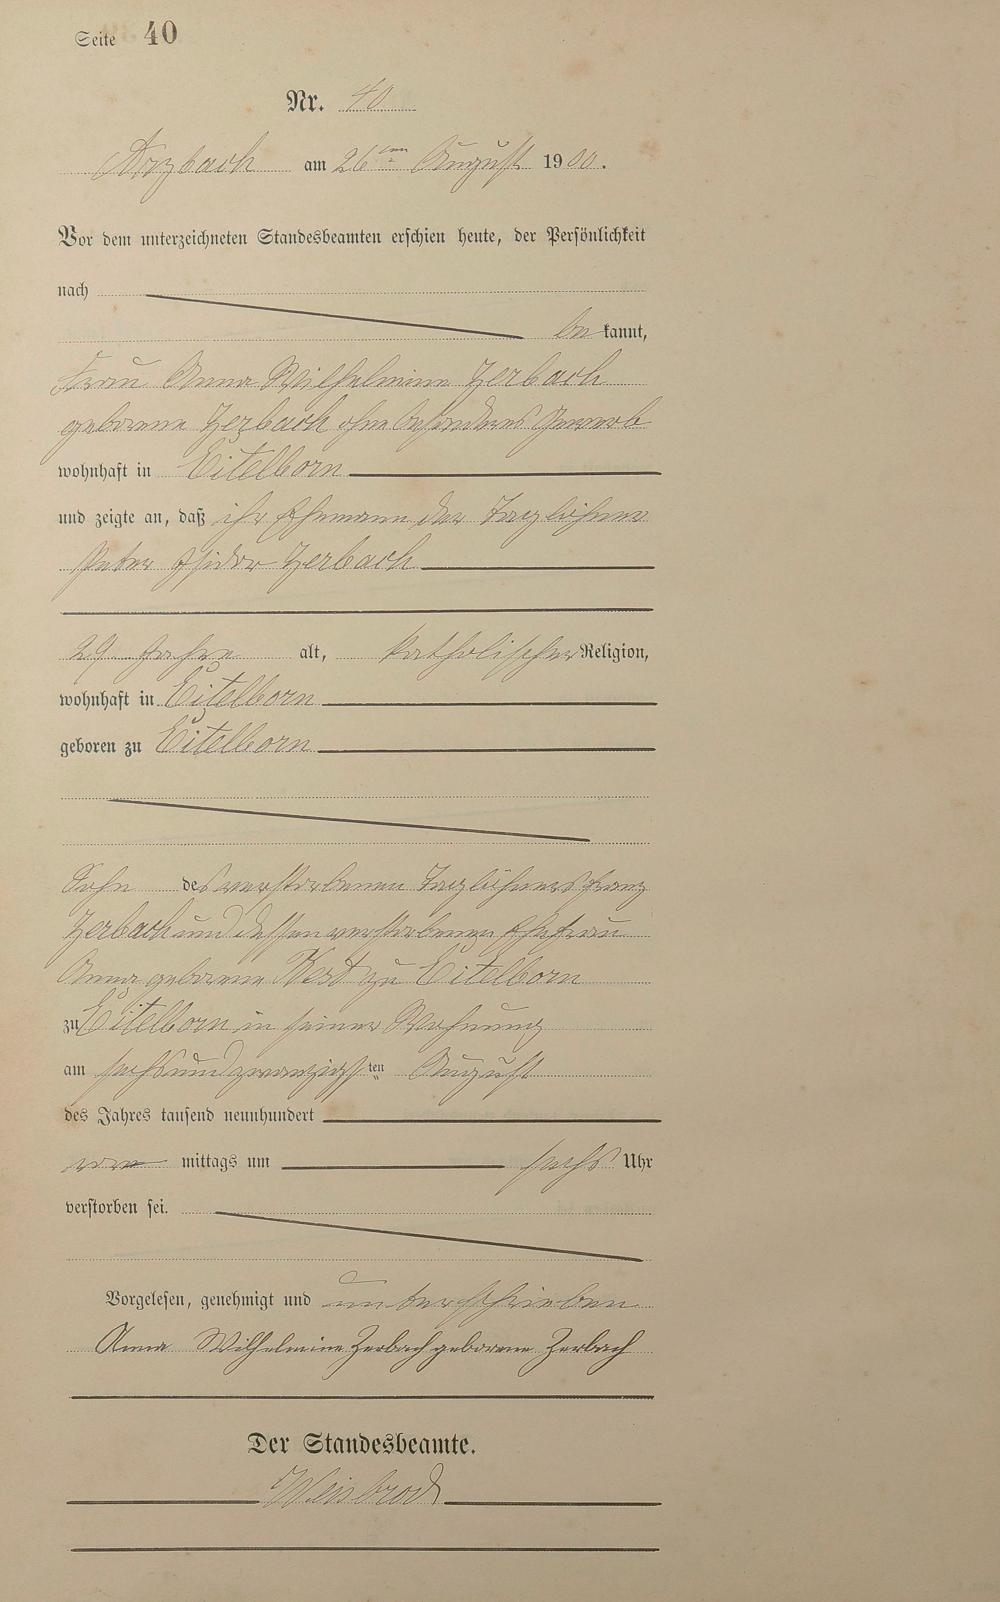 Seite 40
Nr. 40
Arzbach am 26ten August 1900.
Vor dem unterzeichneten Standesbeamten erschien heute, der Persönlichkeit
nach
bekannt,
Frau Anna Wilhelmine Zerbach
geborene Zerbach ohne besonderes Gewerb
wohnhaft in Eitelborn
und zeigte an, daß ihr Ehemann der Taglöhner
Peter Isidor Zerbach
29 Jahre alt, katholischer Religion,
wohnhaft in Eitelborn
geboren zu Eitelborn
Sohn des verstorbenen Taglöhners Franz
Zerbach und dessen verstorbenen Ehefrau
Anna geborene zu Eitelborn
zu Eitelborn in seiner Wohnung
am sechsundzwanzigsten August
des Jahres tausend neunhundert
vor mittags um sechs Uhr
verstorben sei.
Vorgelesen, genehmigt und unterschrieben
Anna Wilhelmine Zerbach geborene Zerbach
Der Standesbeamte.
Weisbrod